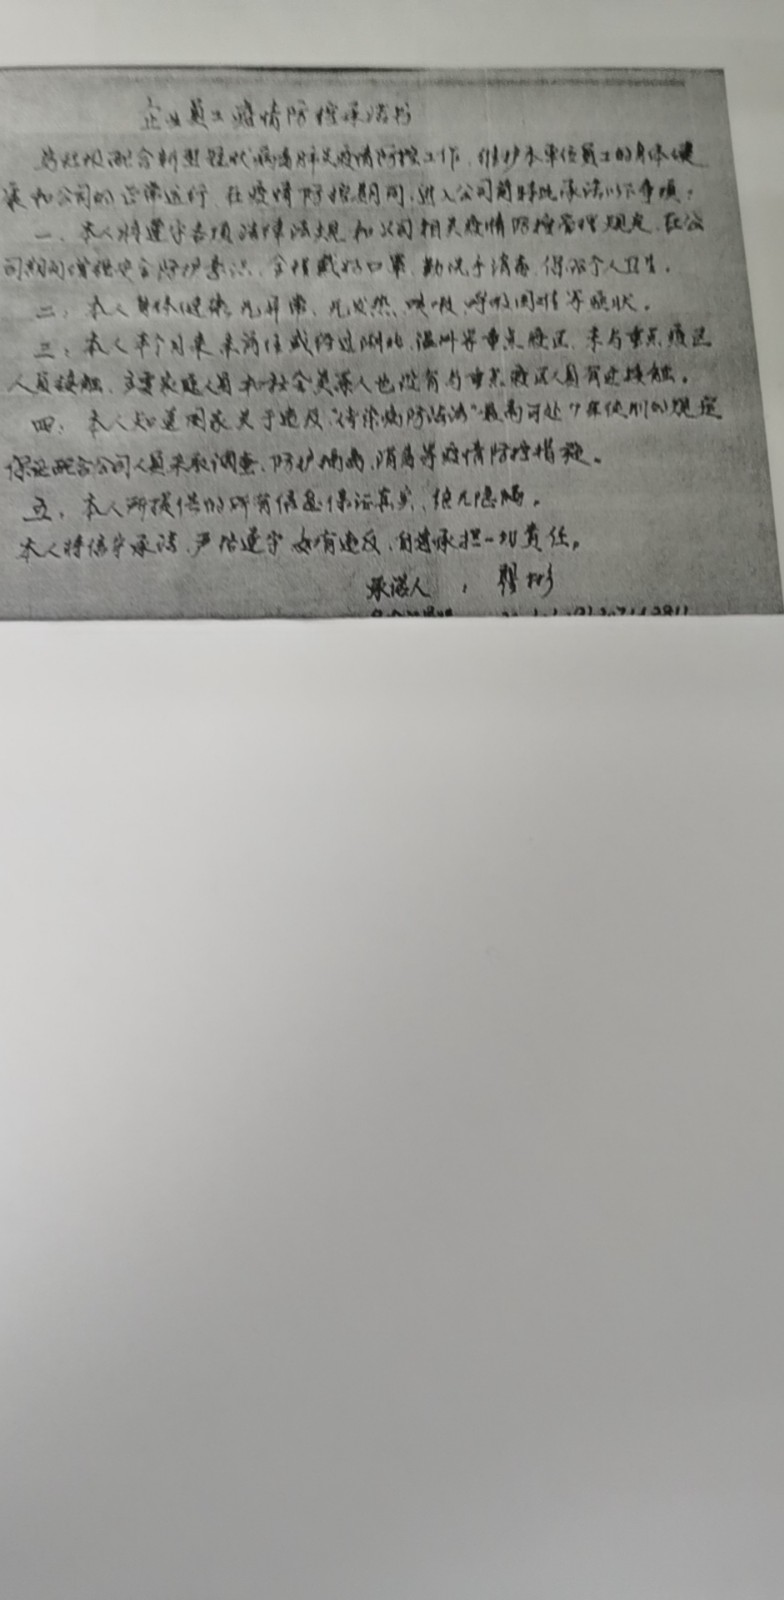 企业员工疫情防控承诺书
为积极配合新型冠状病毒肺炎疫情防控工作，维护本单位员工的身体健
康和公司的正常运行，在疫情防控期间，进入公司前特此承诺以下事项：
一、本人将遵守各项法律法规和公司相关疫情防控管理规定，在公
司期间增强安全防护意识，全程戴好口罩，勤洗手消毒，保持个人卫生。
二、本人身体健康，无异常，无发热、咳嗽、呼吸困难等症状。
三、本人本个月来未前往或路过湖北、温州等重点疫区，未与重点疫区
人员接触，主要家庭人员和社会关系人也没有与重点疫区人员有过接触。
四、本人知道国家关于违反“传染病防治法”最高可处7年徒刑的规定
保证配合公司人员采取调查、防护 隔离等疫情防控措施。
五、本人所提供的所有信息保证真实，绝无隐瞒。
本人将信守承诺，严格遵守，如有违反，自愿承担一切责任。
承诺人：